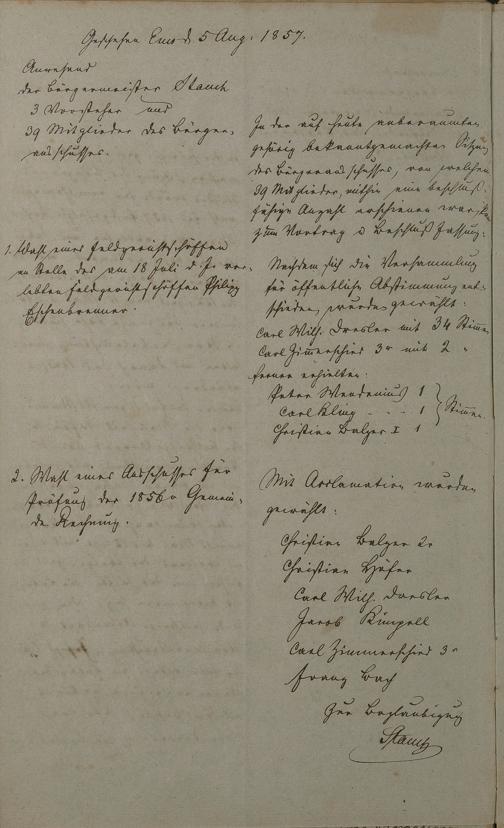 Geschehen Ems d. 5 Aug. 1857.
Anwesend
der Bürgermeister Stamm
3 Vorsteher und
39 Mitglieder des Bürger-
ausschusses.
In der auf heute anberaumten
gehörig bekanntgemachten Sitzung
des Bürgerausschusses, von welchem
39 Mitglieder, mithin eine beschluß-
fähige Anzahl erschienen war, kam
zum Vortrag u Beschlußfassung:
1. Wahl eines Feldgerichtsschöffen
an Stelle des am 18 Juli d. Js. ver-
lebten Feldgerichtsschöffen Philipp
Eschenbrenner.
Nachdem sich die Versammlung
für öffentliche Abstimmung ent-
schieden, wurden gewählt:
Carl Wilh. Dresler mit 34 Stimmen
Carl Zimmerschied 3r mit 2 "
ferner erhielten:
Peter Wendenius 1
Carl Kling - - - 1 Stimmen.
Christian Balzer I 1
2. Wahl eines Ausschusses für
Prüfung der 1856r Gemein-
de Rechnung.
Mit Acclamation wurden
gewählt:
Christian Balzer 2r
Christian Höfer
Carl Wilh. Dresler
Jacob Kimpell
Carl Zimmerschied 3r
Franz Bach
Zur Beglaubigung
Stamm